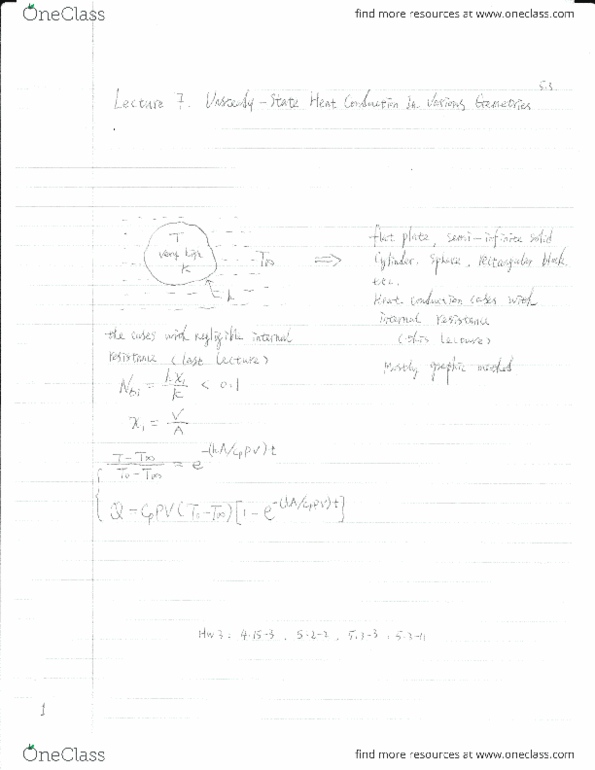 OneClass find more resources at www.oneclass.com
5.3
Lecture 7. Unsteady-State Heat Conduction in Various Geometries
T
very high
k
T∞
h
⇒
flat plate, semi-infinite solid
Cylinder, Sphere, rectangular block
etc.
Heat conduction cases with
internal resistance
(this lecture)
Mostly graphic method
the cases with negligible internal
resistance (last lecture)
N_Bi = hx₁/k < 0.1
x₁ = V/A
(T-T∞)/(T₀-T∞) = e^-(hA/cpρV)t
Q = cpρV(T₀-T∞)[1-e^-(hA/cpρV)t]
HW 3: 4.15-3, 5.2-2, 5.3-3,
1
OneClass find more resources at www.oneclass.com